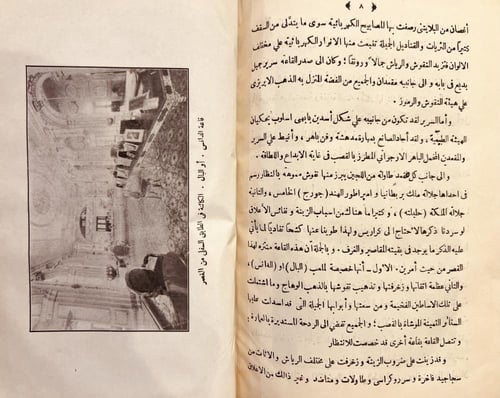 ٨
أغصان من البلاتيني رصفت بها المصابيح الكهربائية سوى ما يتدلى من السقف
كثيرًا من الثريات والقناديل الجميلة تنبعث منها الانوار الكهربائية على مختلف
الالوان فتزيد النقوش والرياش جمالاً ورونقًا؛ وكان الى صدر القاعة سرير جميل
بديع في بابه والى جانبيه مقعدان والجميع من الفضة المغزل به الذهب الابريزي
على هيئة النقوش والرموز.
وأما السرير لقد تكون من جانبيه على شكل أسدين بابهى اسلوب يحكيان
الهيئة الطبيعية، ولقد أجاد الصانع بمهارة مدهشة وفن باهر، وأنيط على السرير
والمقعدين المخمل الباهر الارجواني المطرز بالقصب في غاية الابداع واللطافة.
والى جانب كل مقعد طاولة من اللجين يبرز منها نقوش مموهة بالنظار رسم
في احداها جلالة ملك بريطانيا وامبراطور الهند (جورج) الخامس، والثانية
جلالة الملكة (حليلته)، وكثيرا ما هنا لك من اسباب الزينة ونفائس الأعلاق
لو سردنا ذكرها لاحتاج الى كراريس ولهذا طوينا عنها كشحًا تفاديًا لما يأتي
عليه الذكر مما يوجد في بقيته المقاصير والغرف. وبالجملة أن هذه القاعة منتزه لهذا
القصر من حيث أمرين. الاول – أنها خصيصة للعب (البال) او (الدانس)،
والثاني عظمة اتقانها وزخرفتها وتذهيب نقوشها بالذهب الوهاج وما اشتملت
على تلك الاساطين الفخيمة ومن سعتها وأبوابها الجميلة التي قد اسدلت عليها
الستائر الثمينة الموشاة بالقصب؛ والجميع تفضي الى الردهة المستديرة بالعمارة؛
وتتصل القاعة بقاعة أخرى قد خصصت للانتظار
وقد زينت على ضروب الزينة وزخرفت على مختلف الرياش والاثاث من
سجاجيد فاخرة وسرر وكراسي وطاولات ومناضد وغير ذالك من الاعلاق
قاعة الدانس. أو البال. الكائنة في الطابق السفلي من القصر